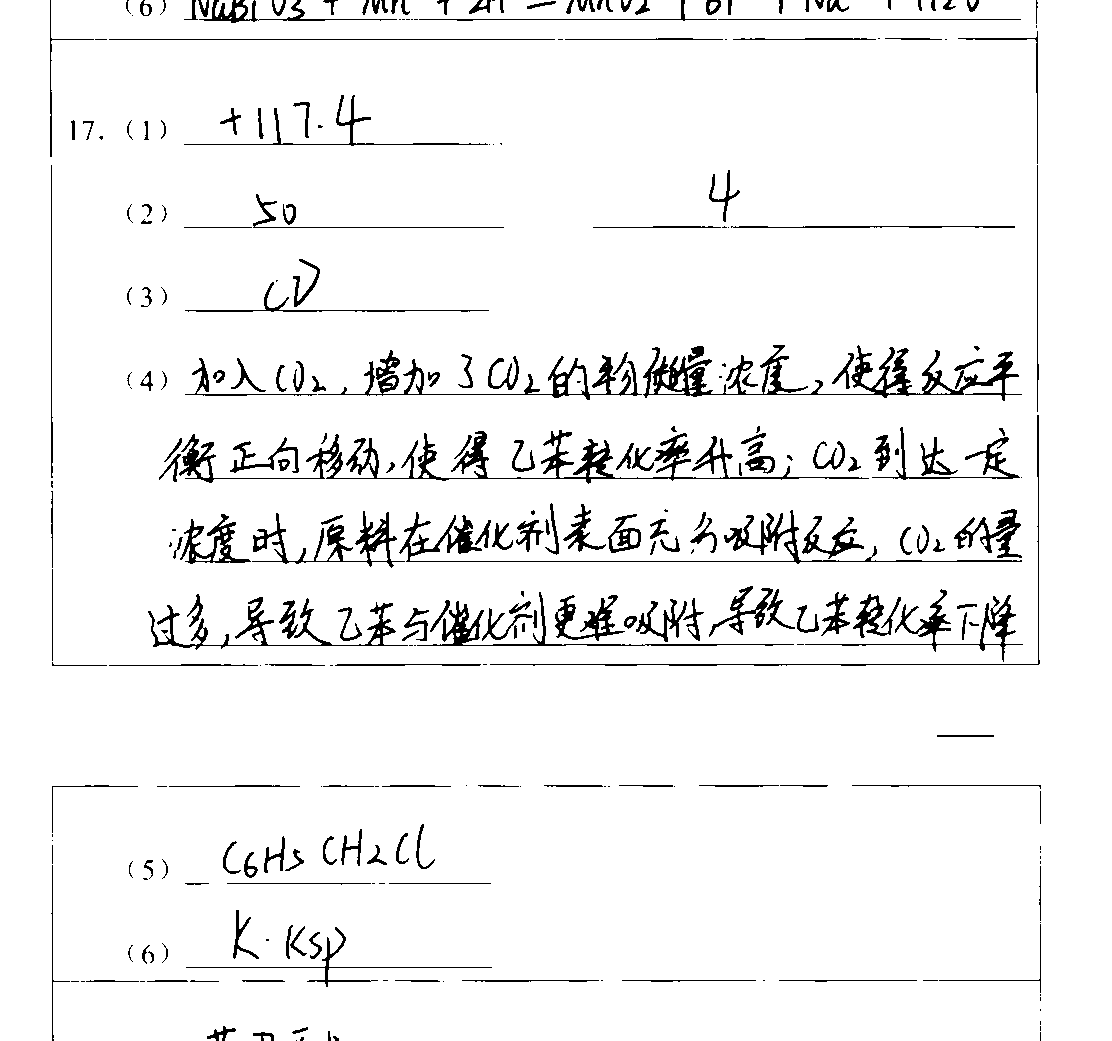 (6) NaBiO3 + Mn + 2H = MnO2 + Bi + Na + H2O
17. (1) +117.4
(2) 50 4
(3) CD
(4) 加入CO2,增加了CO2的物质的量浓度,使得反应平
衡正向移动,使得乙苯转化率升高;CO2到达一定
浓度时,原料在催化剂表面充分吸附反应,CO2的量
过多,导致乙苯与催化剂更难吸附,导致乙苯转化率下降
(5) C6H5CH2Cl
(6) K·Ksp